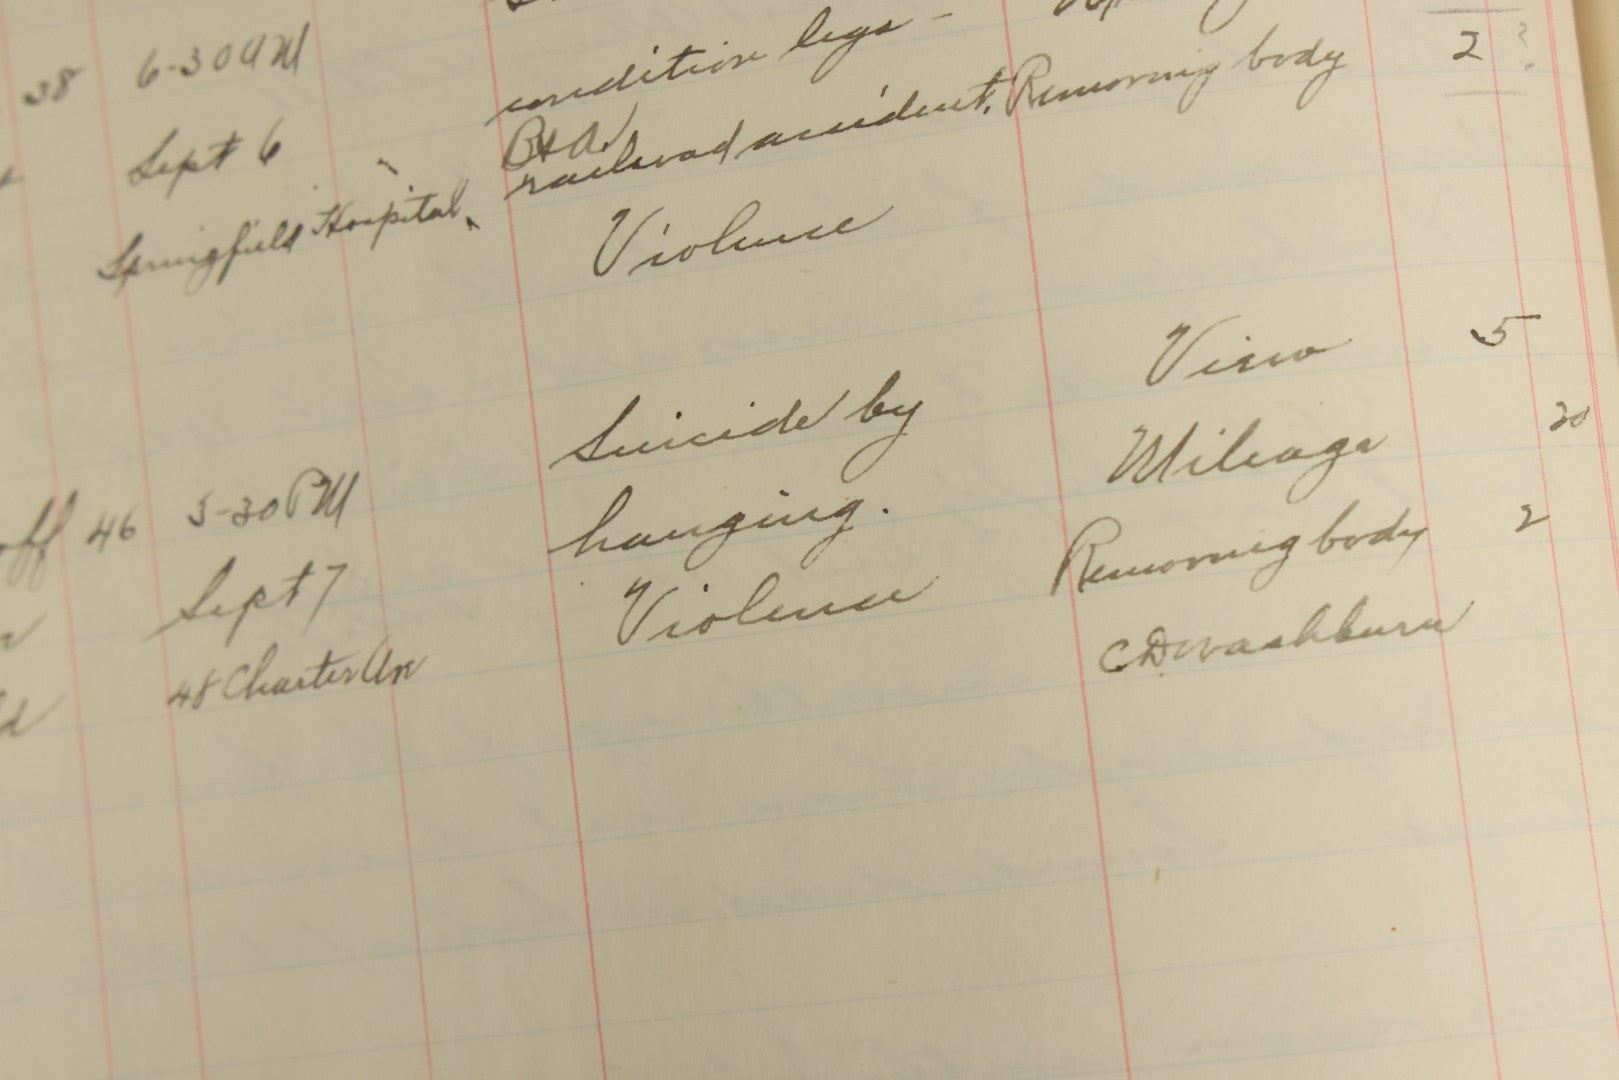 38 6-30 AM condition legs -
Sept 6 B & A. railroad accident. Removing body 2 ?
Springfield Hospital, Violence
View 5
Suicide by Mileage 30
off 46 5-30 PM hanging. Removing body 2
Sept 7 Violence C D Washburn
48 Charter Av